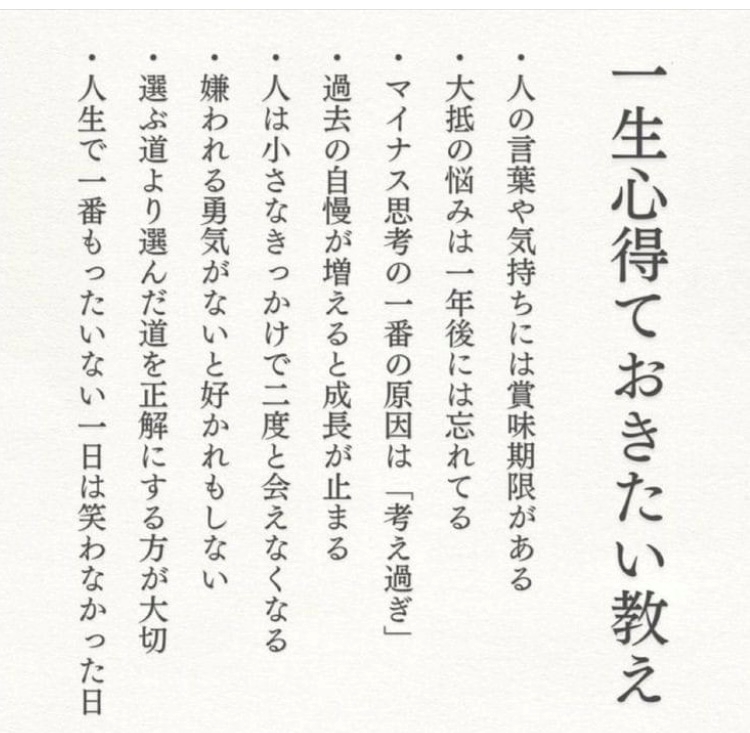 一生心得ておきたい教え
・人の言葉や気持ちには賞味期限がある
・大抵の悩みは一年後には忘れてる
・マイナス思考の一番の原因は「考え過ぎ」
・過去の自慢が増えると成長が止まる
・人は小さなきっかけで二度と会えなくなる
・嫌われる勇気がないと好かれもしない
・選ぶ道より選んだ道を正解にする方が大切
・人生で一番もったいない一日は笑わなかった日